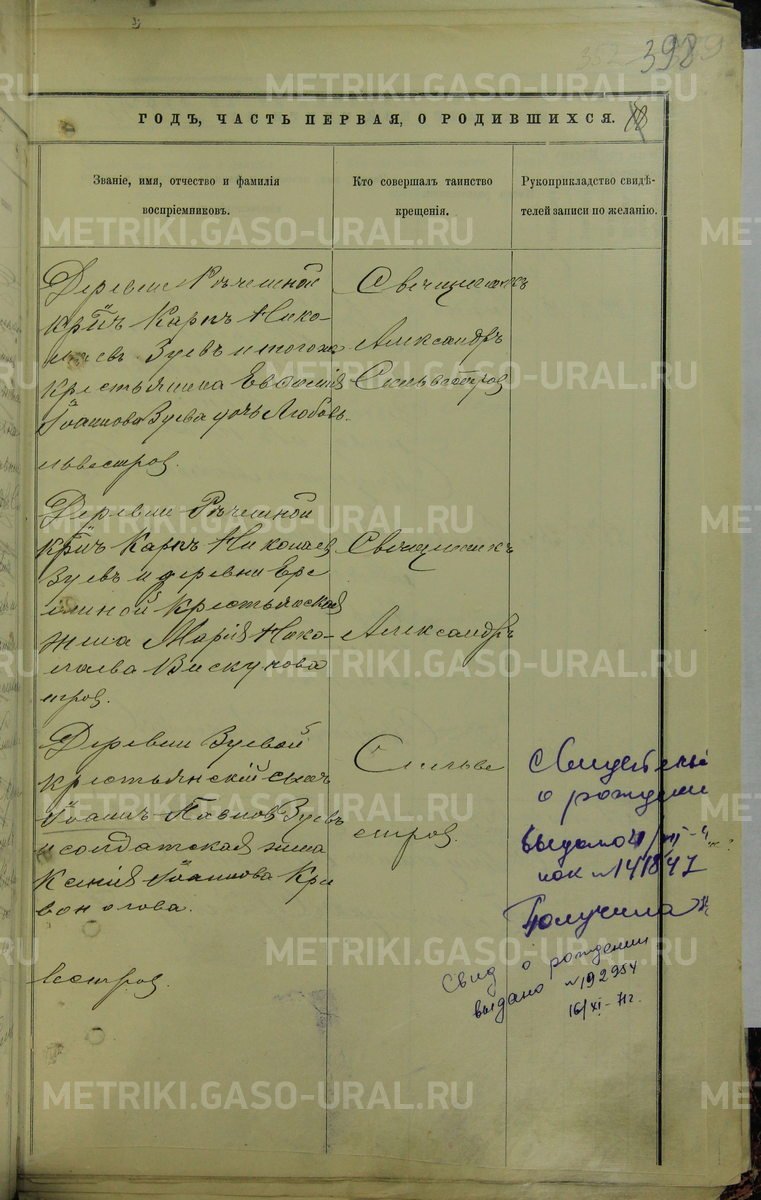 398
ГОДЪ, ЧАСТЬ ПЕРВАЯ, О РОДИВШИХСЯ.
Званіе, имя, отчество и фамилія
воспріемниковъ.
Кто совершалъ таинство
крещенія.
Рукоприкладство свидѣ-
телей записи по желанію.
Деревни Рѣчешной
Карпъ Нико-
Зуевъ и того же
крестьянина Евфимія
Іоаннова Зуева дочь Любовь.
ильвестров.
Священникъ
Александръ
Сильвестров
Деревни Рѣчешной
Карпъ Николаев
Зуевъ и деревни Ере
миной крестьянская
жена Марія Нико-
лаева Вискунова
стров.
Священникъ
Александръ
Деревни Зуевой
крестьянскій сынъ
Іоаннъ Павлов Зуевъ
и солдатская жена
Ксенія Іоаннова Кри
воногова.
вестров.
Сильве
стров.
Свидетель
о рождении
выдано
№ 141847
Получила
Свид о рождении
выдано №192954
16/XI-71г.
METRIKI.GASO-URAL.RU